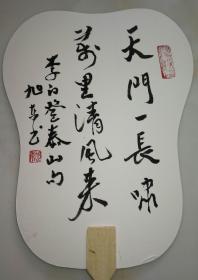 天門一長嘯
萬里清風来
李白登泰山句
旭东书